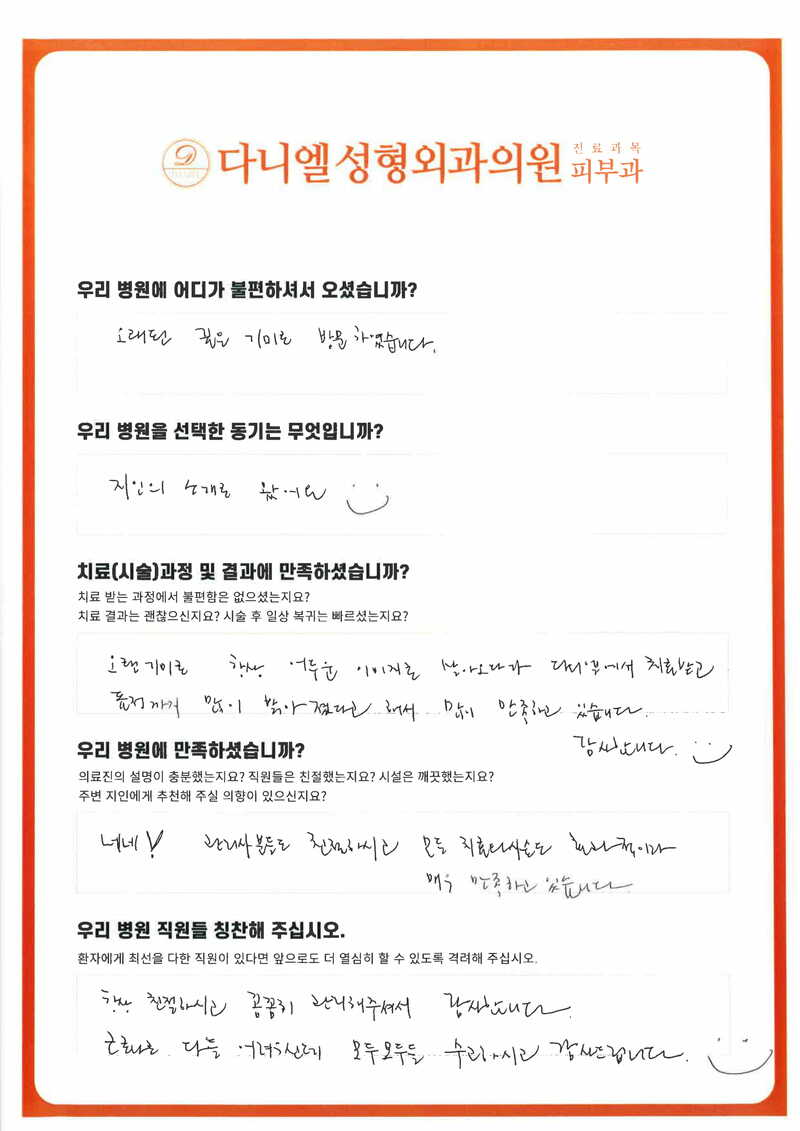 다니엘성형외과의원 진료과목 피부과
우리 병원에 어디가 불편하셔서 오셨습니까?
오래된 짙은 기미로 방문하였습니다.
우리 병원을 선택한 동기는 무엇입니까?
지인의 소개로 왔어요
치료(시술)과정 및 결과에 만족하셨습니까?
치료 받는 과정에서 불편함은 없으셨는지요?
치료 결과는 괜찮으신지요? 시술 후 일상 복귀는 빠르셨는지요?
오랜기미로 항상 어두운 이미지로 살아오다가 치료받고
많이 밝아졌다고 해서 많이 만족하고 있습니다.
감사합니다.
우리 병원에 만족하셨습니까?
의료진의 설명이 충분했는지요? 직원들은 친절했는지요? 시설은 깨끗했는지요?
주변 지인에게 추천해 주실 의향이 있으신지요?
네네! 관리사분들도 친절하시고 모든 치료
매우 만족하고 있습니다.
우리 병원 직원들 칭찬해 주십시오.
환자에게 최선을 다한 직원이 있다면 앞으로도 더 열심히 할 수 있도록 격려해 주십시오.
항상 친절하시고 꼼꼼히 관리해주셔서 감사합니다.
코로나로 다들 어려우신데 모두모두들 수고하시고 감사드립니다.